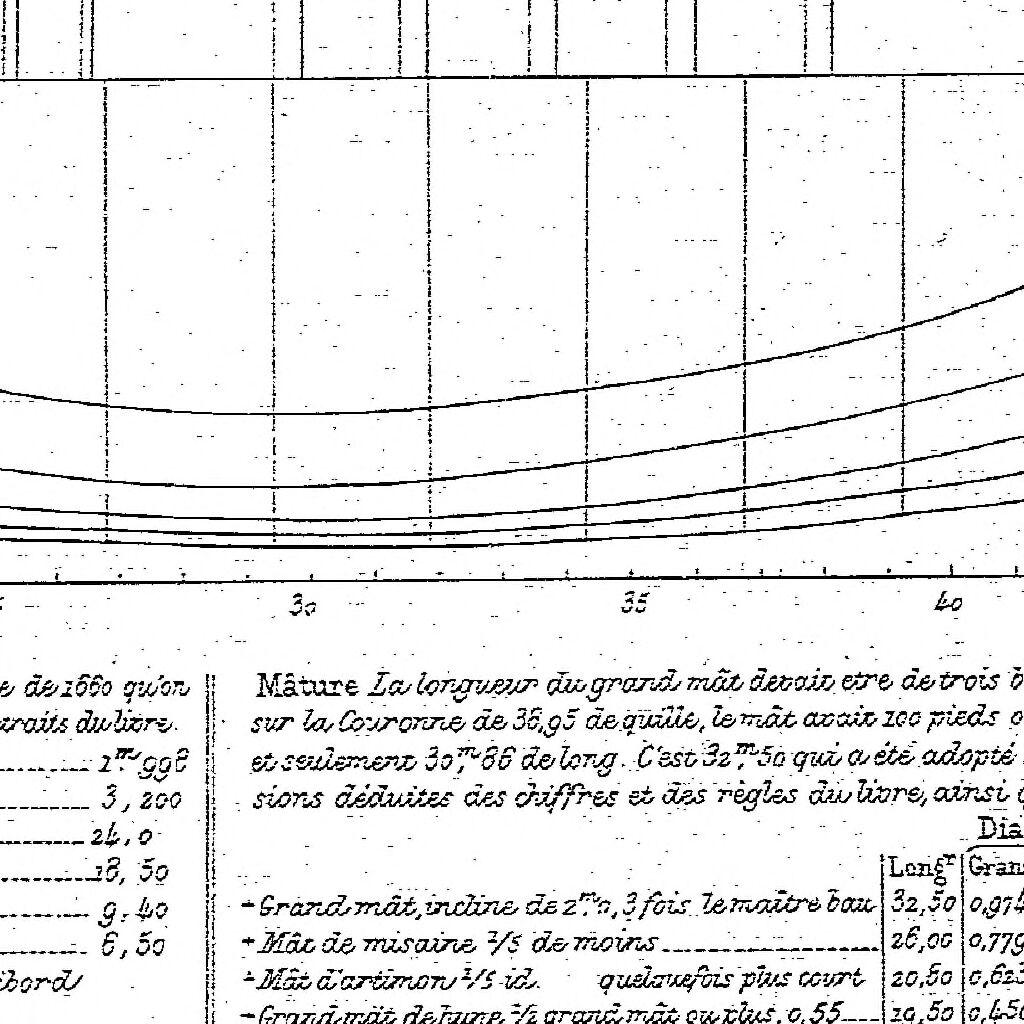 30 35 40
e de 1660 qu'on
traits du livre.
1,ᵐ998
3, 200
24, 0
18, 50
9, 40
6, 50
bord
Mâture La longueur du grand mât devait etre de trois b
sur la Couronne de 38,95 de quille, le mât avait 100 pieds
et seulement 30,ᵐ86 de long. C'est 32,ᵐ50 qui a été adopté
sions déduites des chiffres et des règles du livre, ainsi
Dia
Longʳ Gran
Grand mât, incline de 2,ᵐ0, 3 fois le maître bau 32,50 0,974
Mât de misaine 1/5 de moins 26,00 0,779
Mât d'artimon 1/5 id. quelquefois plus court 20,80 0,623
Grand mât de hune 1/2 grand mât ou plus, 0,55 19,50 0,450